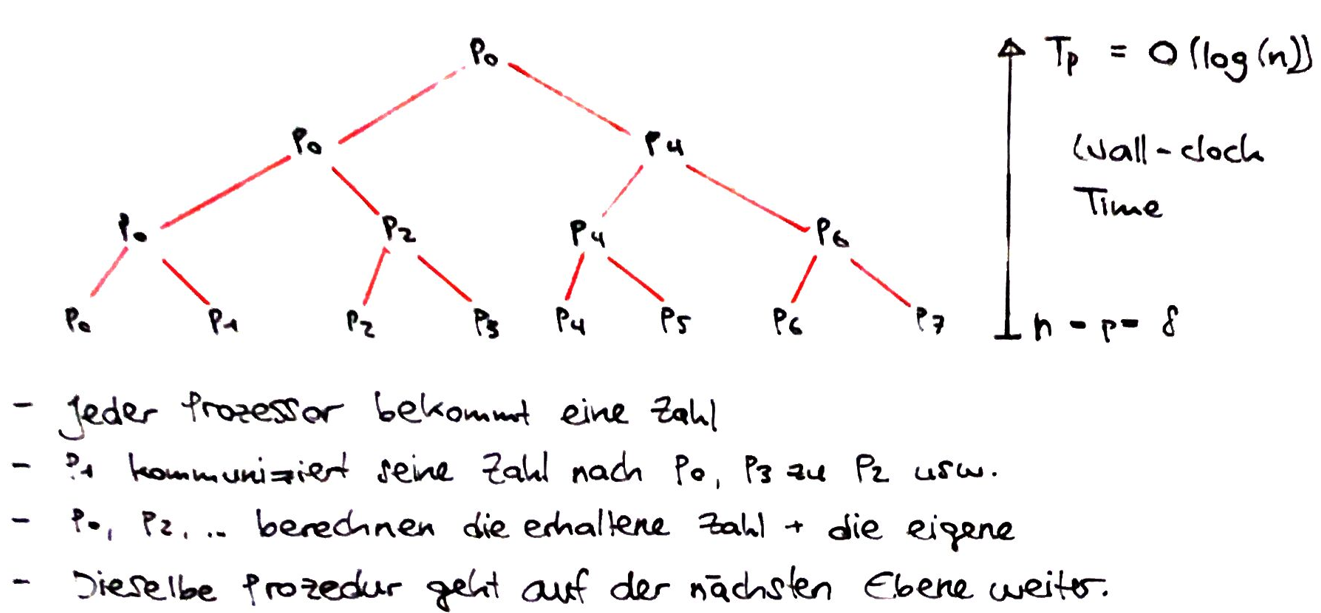 P0
Tp = O(log(n))
P0 P4
Wall-clock
Time
P0 P2 P4 P6
P0 P1 P2 P3 P4 P5 P6 P7
n = p = 8
- Jeder Prozessor bekommt eine Zahl
- P1 kommuniziert seine Zahl nach P0, P3 zu P2 usw.
- P0, P2, .. berechnen die erhaltene Zahl + die eigene
- Dieselbe Prozedur geht auf der nächsten Ebene weiter.